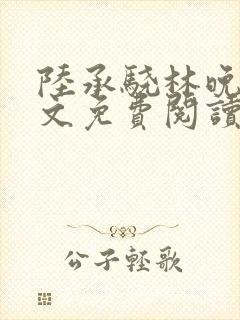 陸承驍林晚
文免費閱讀
公子輕歌